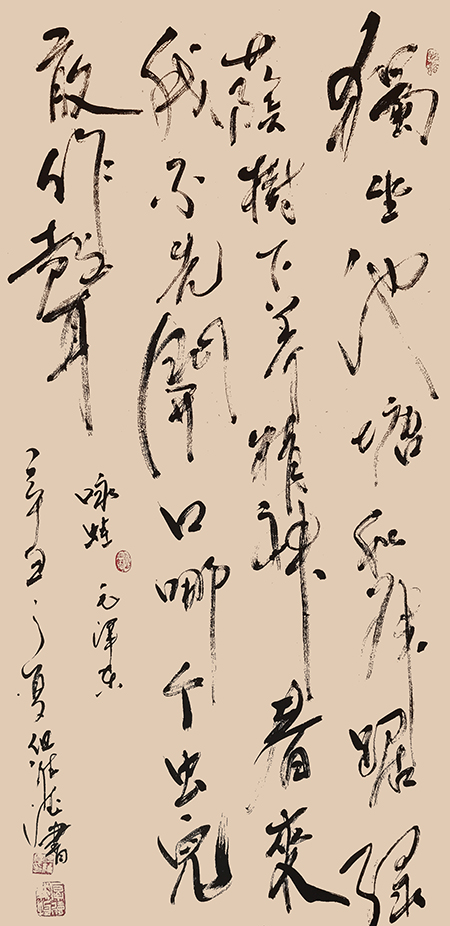 獨坐池塘如虎踞绿
蔭樹下养精神春來
我不先開口哪个虫兒
敢作聲
咏蛙 毛澤东
辛丑之夏 書